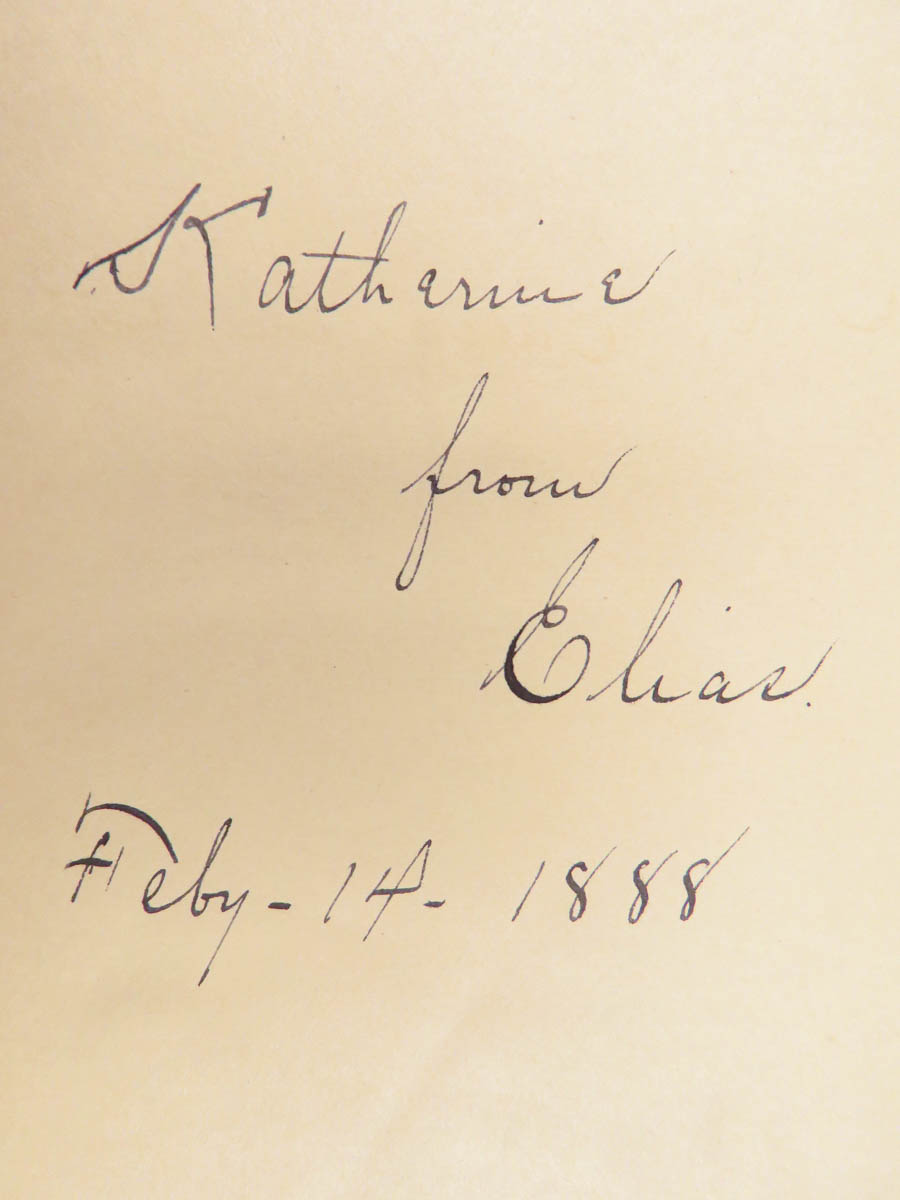 Katherine
from
Elias.
Feby - 14 - 1888